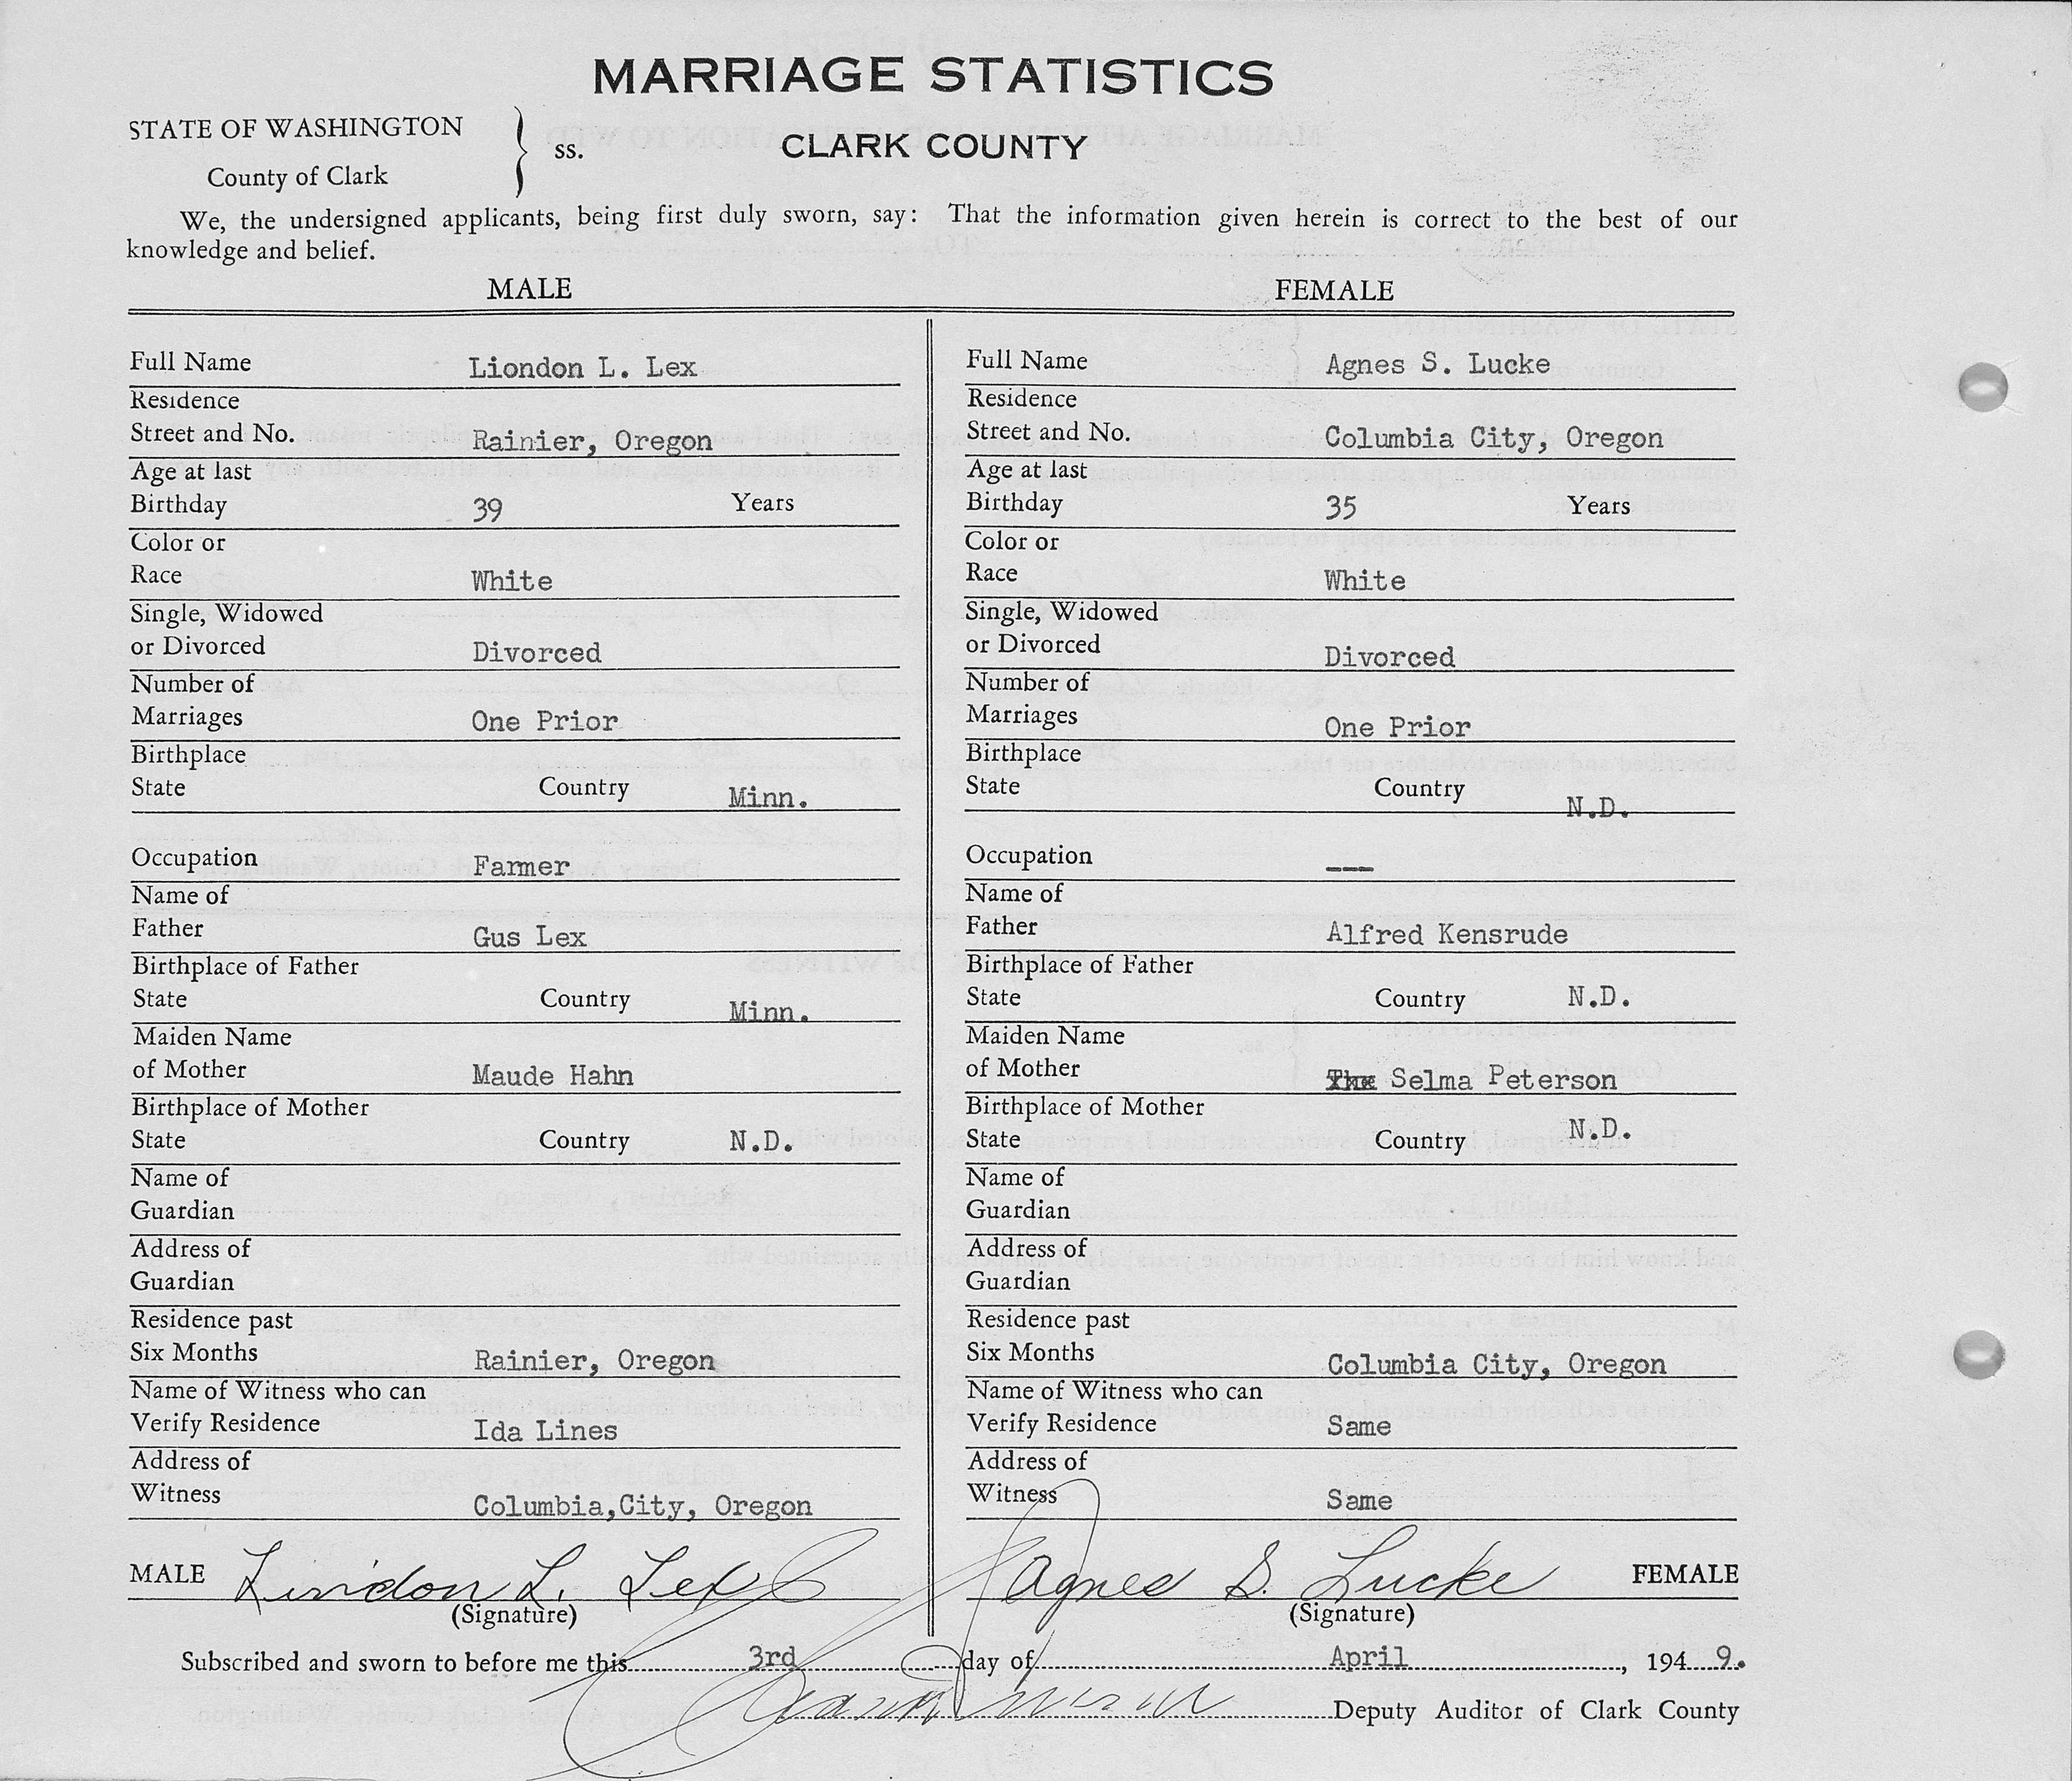 MARRIAGE STATISTICS
STATE OF WASHINGTON
County of Clark
ss.
CLARK COUNTY
We, the undersigned applicants, being first duly sworn, say: That the information given herein is correct to the best of our
knowledge and belief.
MALE
Full Name Liondon L. Lex
Residence
Street and No. Rainier, Oregon
Age at last
Birthday 39 Years
Color or
Race White
Single, Widowed
or Divorced Divorced
Number of
Marriages One Prior
Birthplace
State Country Minn.
Occupation Farmer
Name of
Father Gus Lex
Birthplace of Father
State Country Minn.
Maiden Name
of Mother Maude Hahn
Birthplace of Mother
State Country N.D.
Name of
Guardian
Address of
Guardian
Residence past
Six Months Rainier, Oregon
Name of Witness who can
Verify Residence Ida Lines
Address of
Witness Columbia,City, Oregon
MALE Lindon L. Lex
(Signature)
FEMALE
Full Name Agnes S. Lucke
Residence
Street and No. Columbia City, Oregon
Age at last
Birthday 35 Years
Color or
Race White
Single, Widowed
or Divorced Divorced
Number of
Marriages One Prior
Birthplace
State Country N.D.
Occupation ---
Name of
Father Alfred Kensrude
Birthplace of Father
State Country N.D.
Maiden Name
of Mother Selma Peterson
Birthplace of Mother
State Country N.D.
Name of
Guardian
Address of
Guardian
Residence past
Six Months Columbia City, Oregon
Name of Witness who can
Verify Residence Same
Address of
Witness Same
Agnes S. Lucke FEMALE
(Signature)
Subscribed and sworn to before me this 3rd day of April, 1949.
Deputy Auditor of Clark County